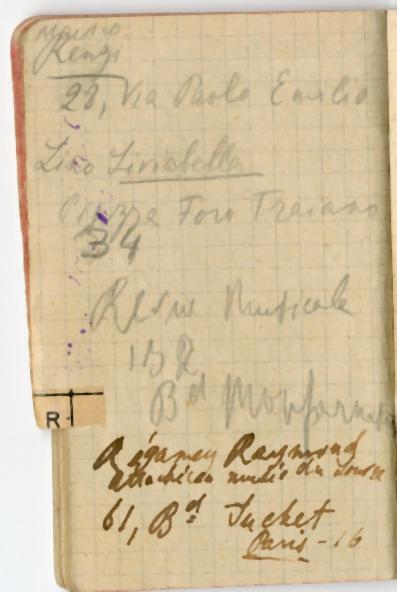 Renzi
28, Via Paolo Emilio
Lino Liviabella
Piazza Foro Traiano
34
Revue Musicale
132
Bd Monparnasse
R
Régamey Raymond
attaché au musée du Louvre
61, Bd Suchet
Paris - 16